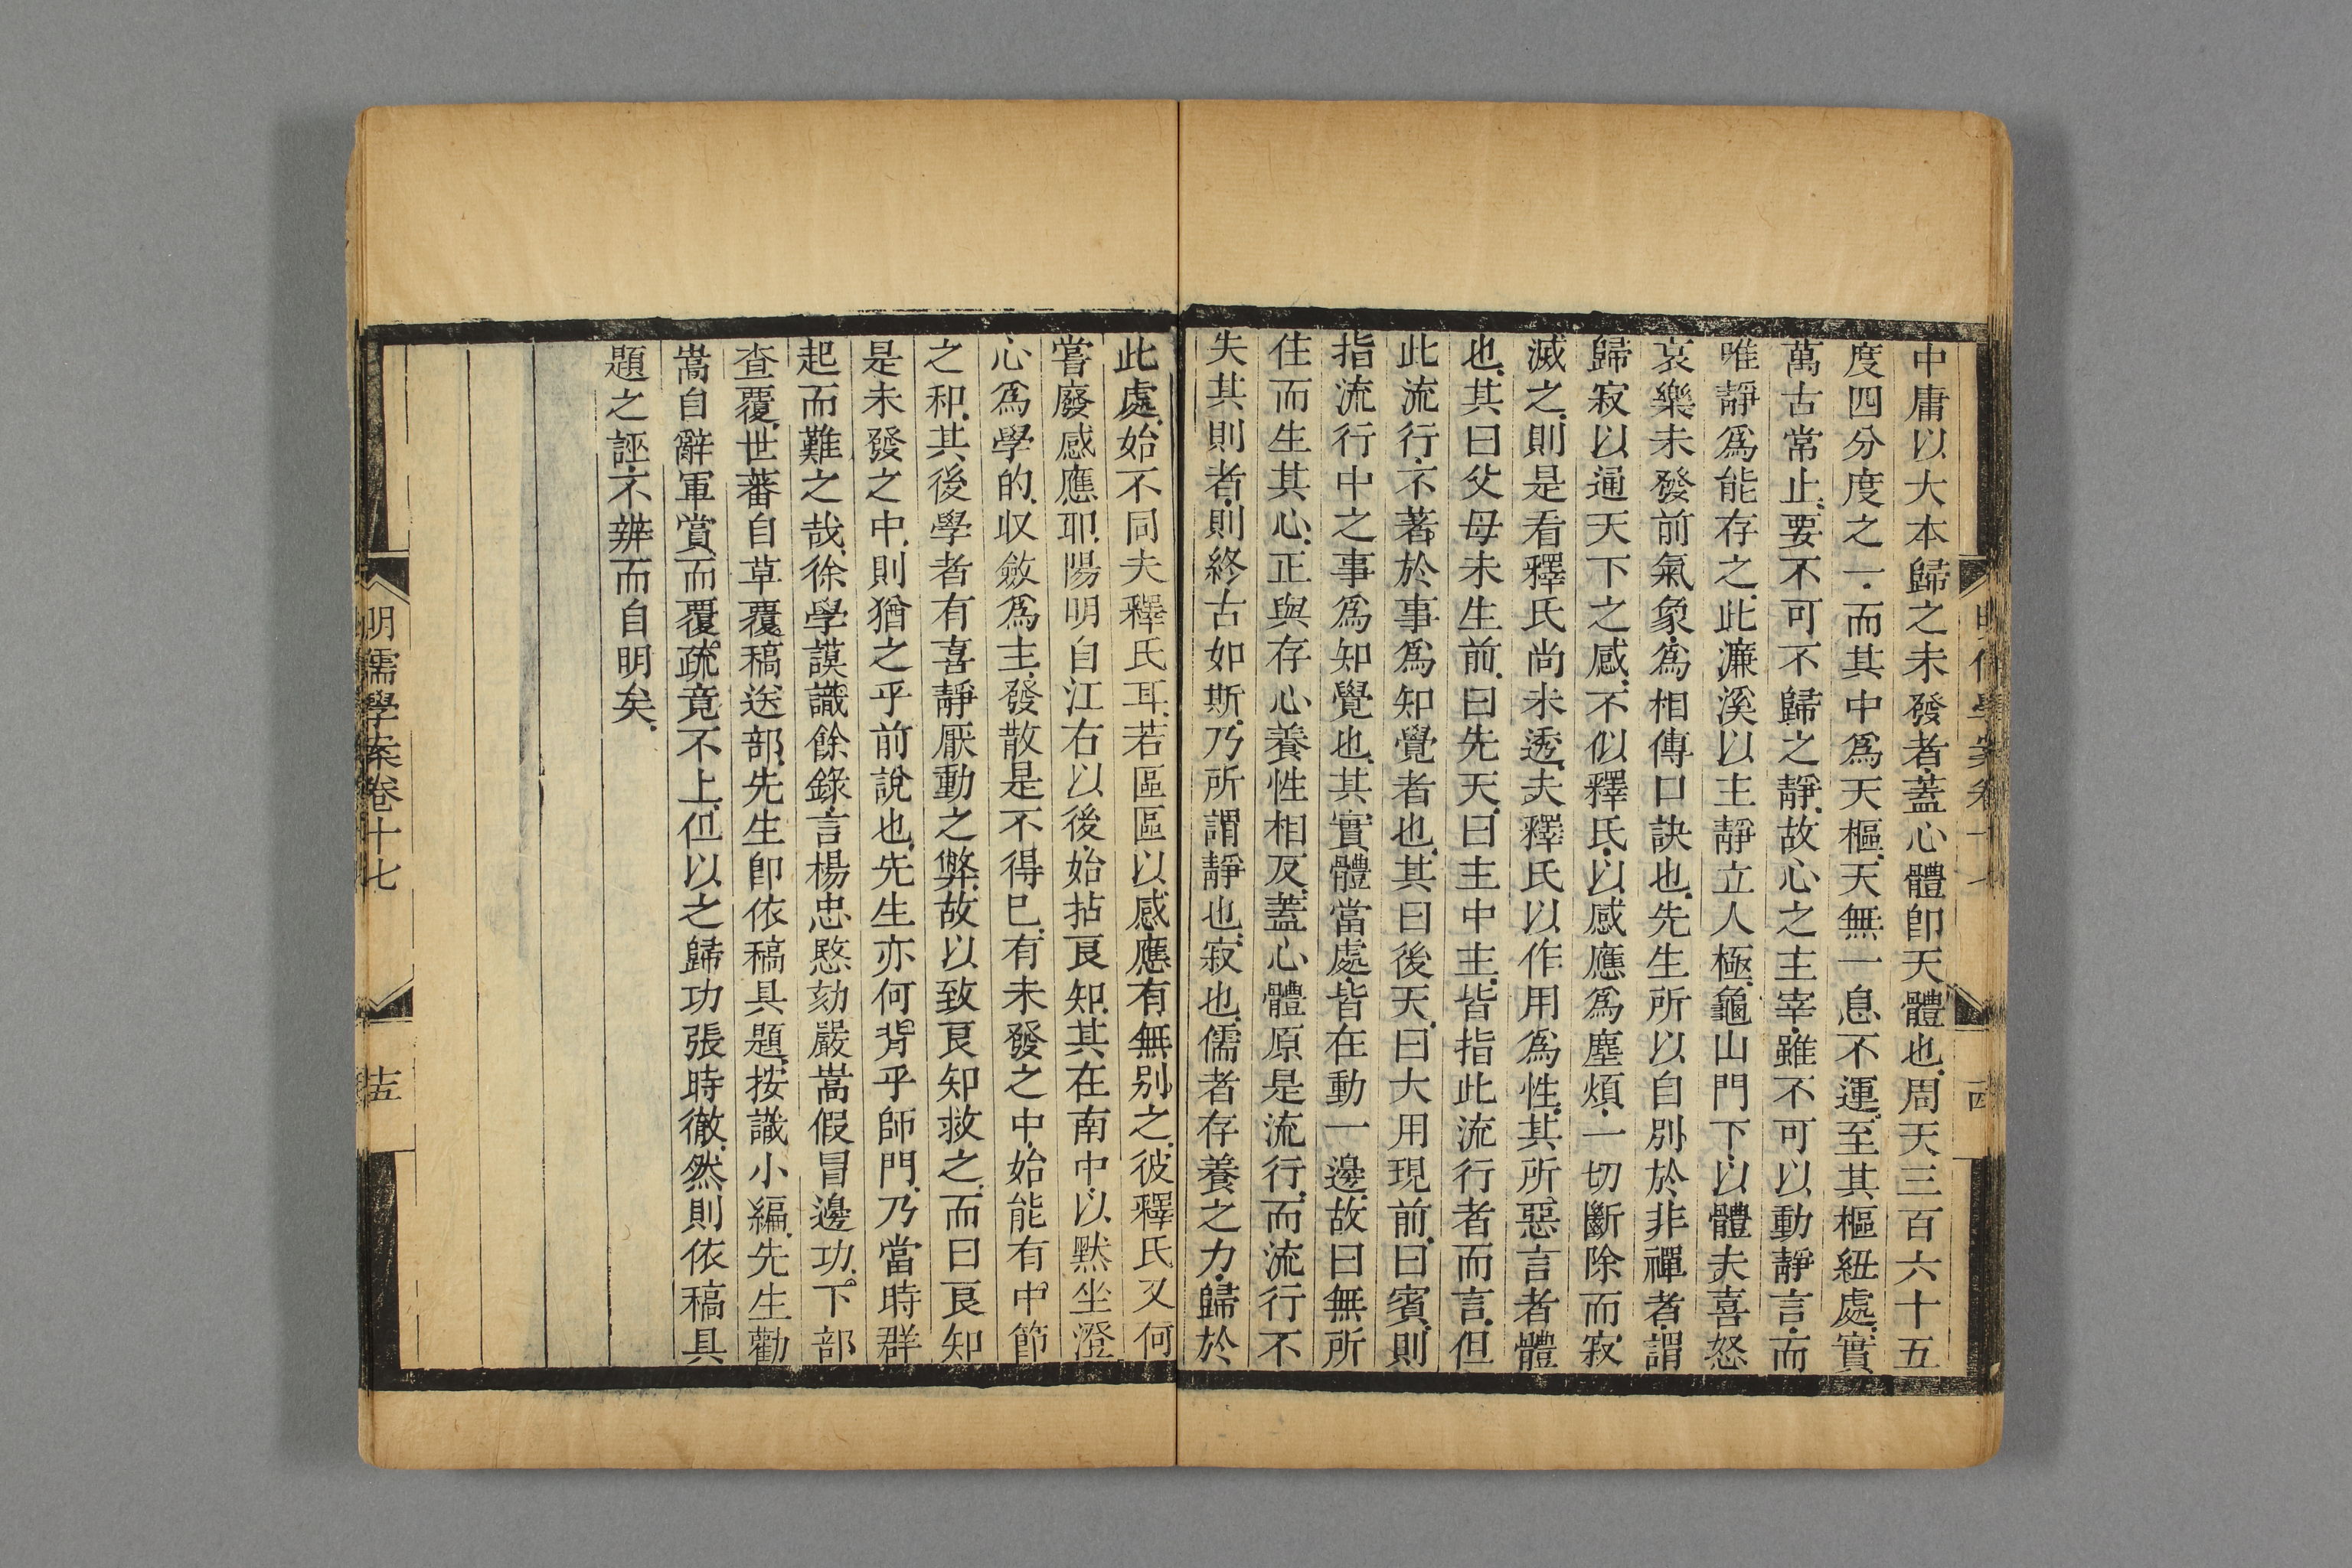 中庸以大本歸之未發者蓋心體卽天體也周天三百六十五
度四分度之一而其中爲天樞天無一息不運至其樞紐處實
萬古常止要不可不歸之靜故心之主宰雖不可以動靜言而
唯靜爲能存之此濂溪以主靜立人極龜山門下以體夫喜怒
哀樂未發前氣象爲相傳口訣也先生所以自別於非禪者謂
歸寂以通天下之感不似釋氏以感應爲塵煩一切斷除而寂
滅之則是看釋氏尚未透夫釋氏以作用爲性其所惡言者體
也其曰父母未生前曰先天曰主中主皆指此流行者而言但
此流行不著於事爲知覺者也其曰後天曰大用現前曰賓則
指流行中之事爲知覺也其實體當處皆在動一邊故曰無所
住而生其心正與存心養性相反蓋心體原是流行而流行不
失其則者則終古如斯乃所謂靜也寂也儒者存養之力歸於
此處始不同夫釋氏耳若區區以感應有無别之彼釋氏又何
嘗廢感應耶陽明自江右以後始拈良知其在南中以默坐澄
心爲學的収斂爲主發散是不得已有未發之中始能有中節
之和其後學者有喜靜厭動之弊故以致良知救之而曰良知
是未發之中則猶之乎前說也先生亦何背乎師門乃當時群
起而難之哉徐學謨識餘錄言楊忠愍劾嚴嵩假冒邊功下部
查覆世蕃自草覆稿送部先生卽依稿具題按識小編先生勸
嵩自辭軍賞而覆疏竟不上但以之歸功張時徹然則依稿具
題之誣不辨而自明矣
明儒學案卷十七
十五